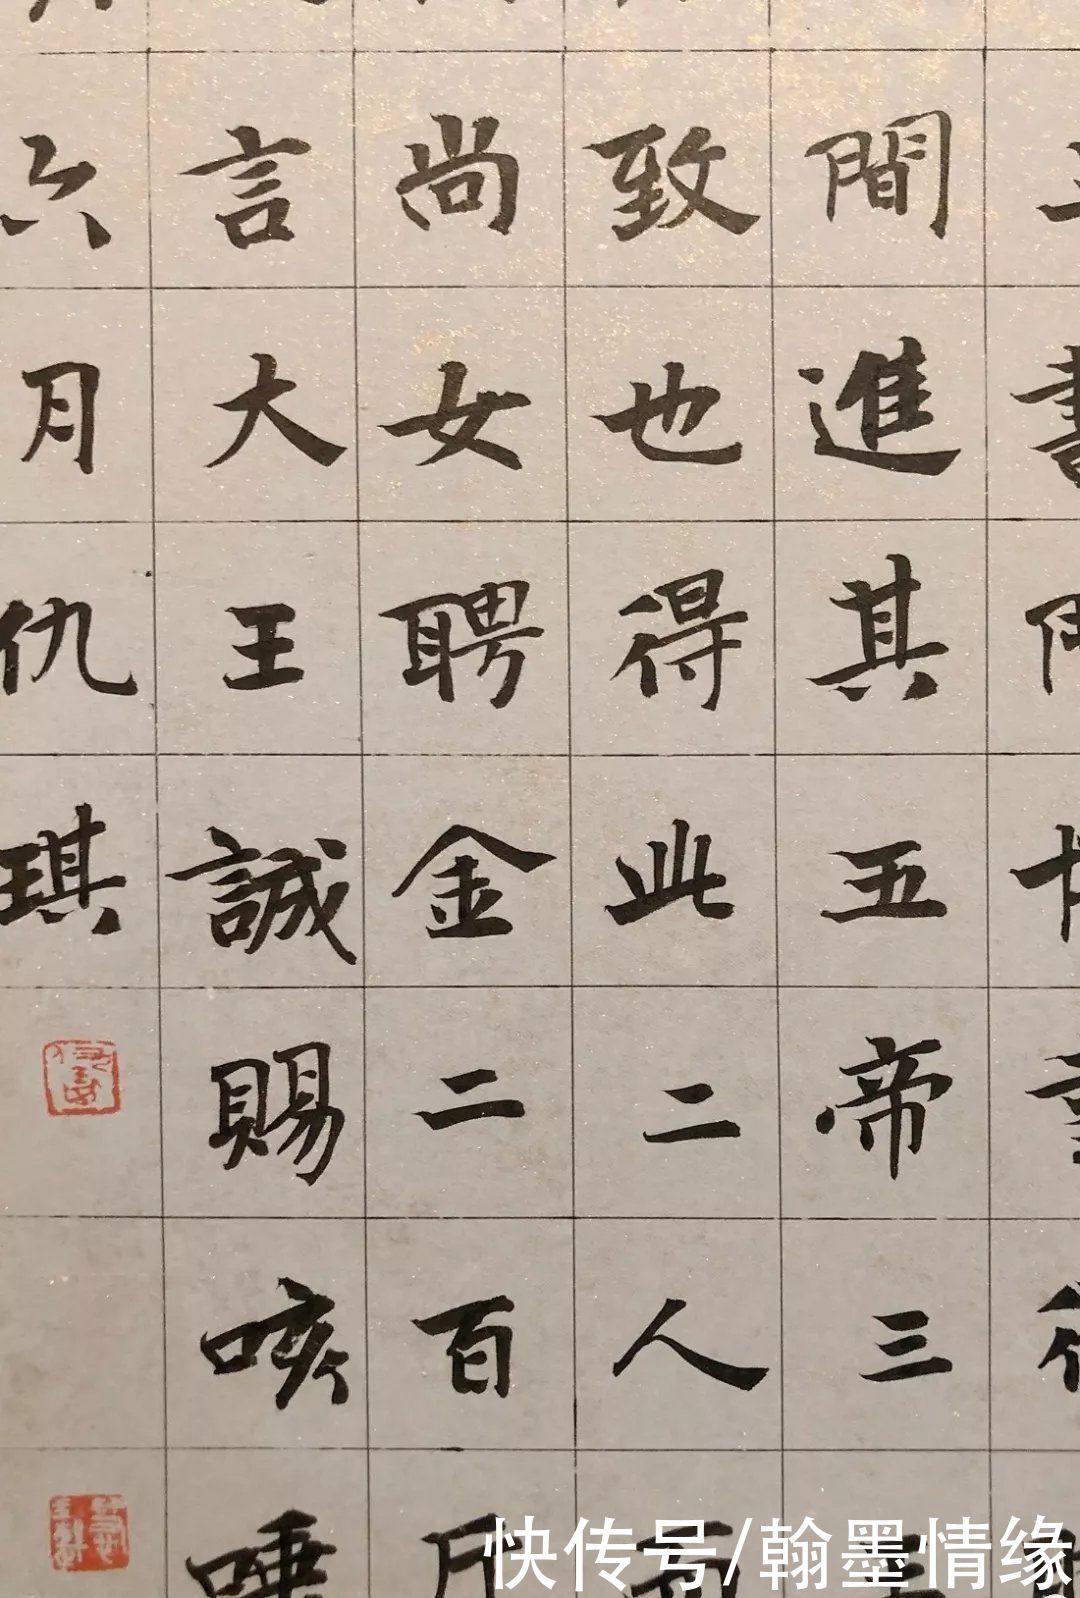 書
間進其五帝三
致也得此二人
尚女聘金二百
言大王誠賜咳唾
六月仇琪
快传号/翰墨情缘